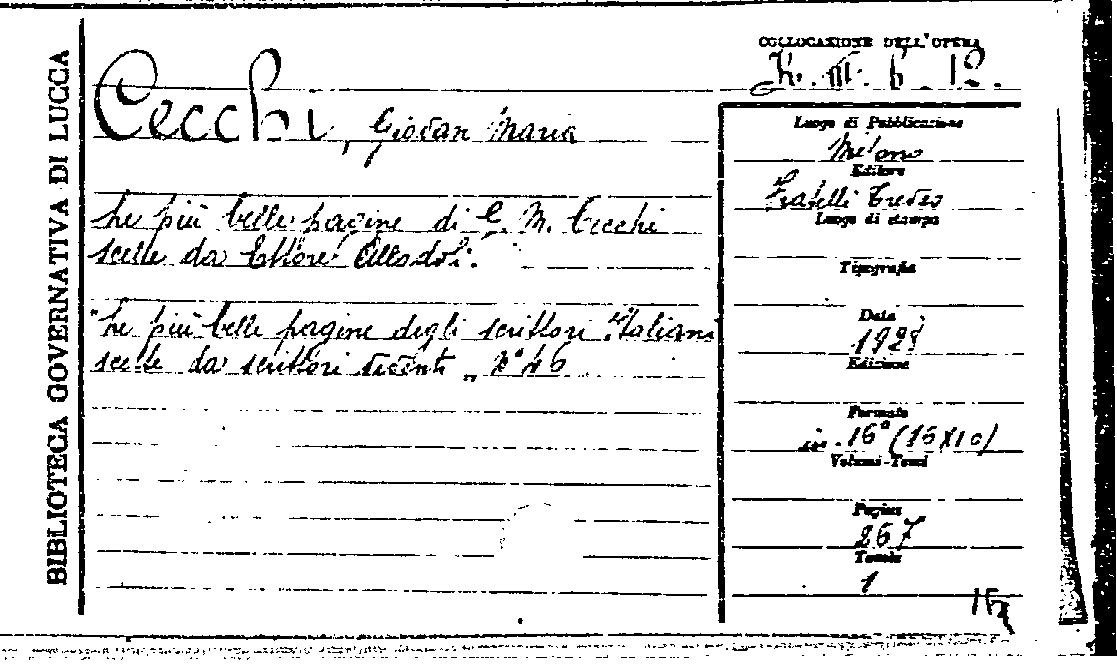 BIBLIOTECA GOVERNATIVA DI LUCCA
COLLOCAZIONE DELL'OPERA
K. III. b. 12.
Cecchi, Giovan Maria
Le più belle pagine di G. M. Cecchi
scelte da Ettore Allodoli.
"Le più belle pagine degli scrittori Italiani
scelte da scrittori viventi„ N° 46
Luogo di Pubblicazione
Milano
Editore
Fratelli Treves
Luogo di stampa
Tipografia
Data
192
Edizione
Formato
in-16° (16X10)
Volumi-Tomi
Pagine
267
Tavole
1